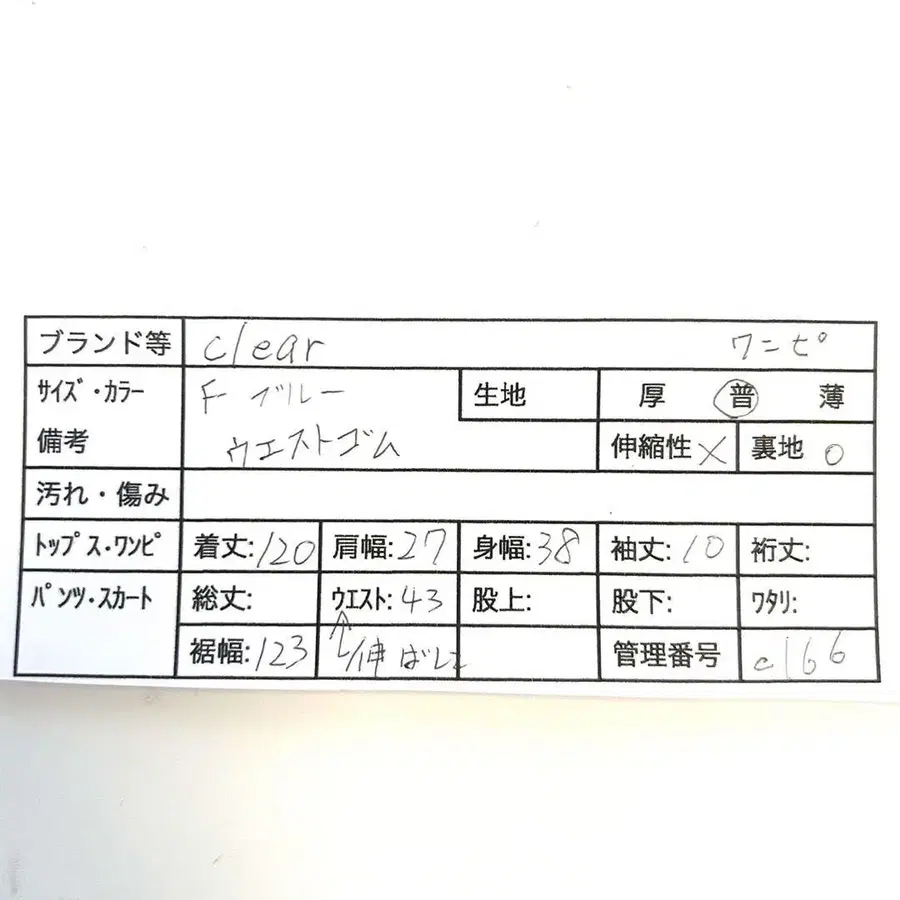 ブランド等 clear ワンピ
サイズ・カラー F ブルー 生地 厚 普 薄
備考 ウエストゴム 伸縮性 × 裏地 ○
汚れ・傷み
トップス・ワンピ 着丈:120 肩幅:27 身幅:38 袖丈:10 裄丈:
パンツ・スカート 総丈: ウエスト:43 股上: 股下: ワタリ:
裾幅:123 ↑伸ばして 管理番号 c166